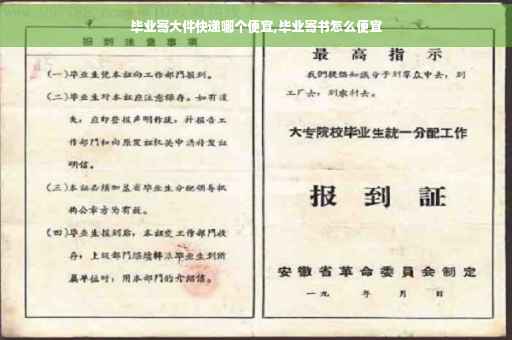 毕业寄大件快递哪个便宜,毕业寄书怎么便宜
报到注意事项
(一)毕业生凭本证向工作部门报到。
(二)毕业生对本证应注意保存。如有遗
失,应即登报声明作废,并报告工
作部门和向原发证机关申请补发证
明信。
(三)本证必须加盖省毕业生分配领导机
构公章方为有效。
(四)毕业生报到后,本证交工作部门收
存,上级部门
毕业生到所
属单位时,用本部门的介绍信。
最高指示
我们提倡知识分子到群众中去,到
工厂去,到农村去。
大专院校毕业生統一分配工作
报到証
安徽省革命委員会制定
一九 年 月 日